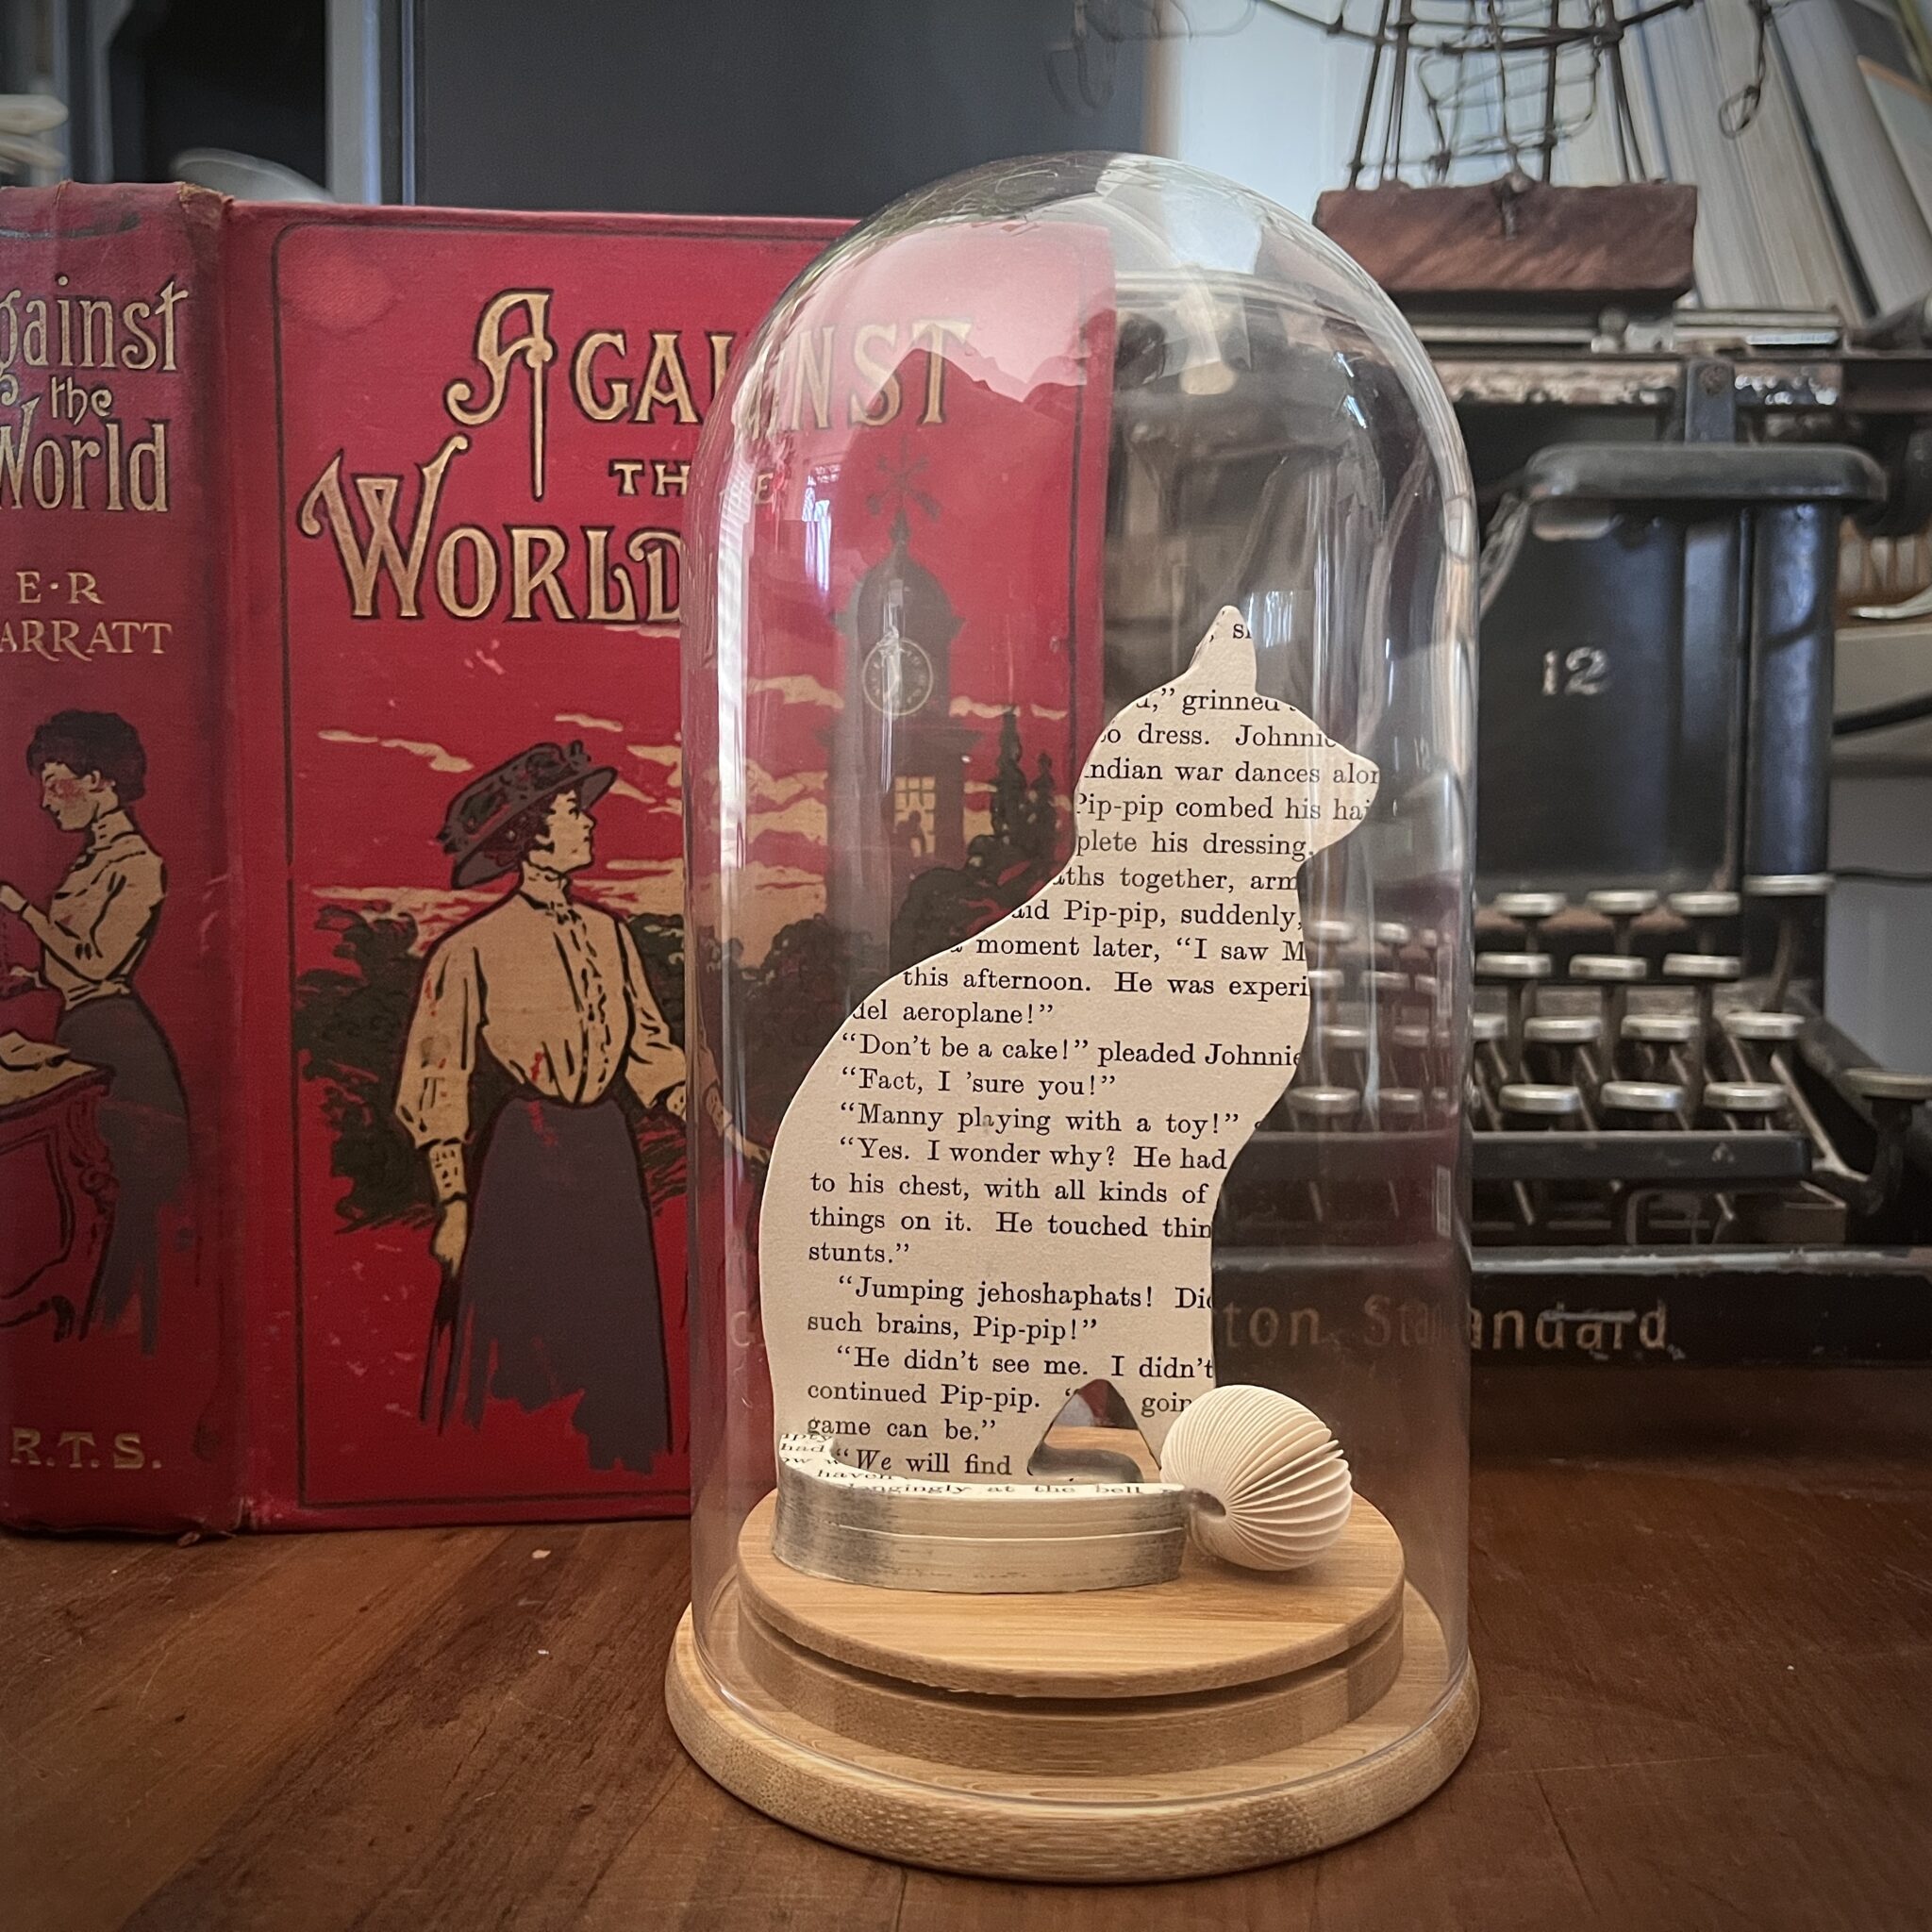 Against
the
World
E·R
R.T.S.
AGAINST
THE
WORLD
12
Standard
grinned
dress. Johnnie
war dances
Pip-pip combed his
his dressing.
together,
Pip-pip, suddenly,
moment later, “I saw
this afternoon. He was
aeroplane!”
“Don’t be a cake!” pleaded Johnnie
“Fact, I ’sure you!”
“Manny playing with a toy!”
“Yes. I wonder why? He had
to his chest, with all kinds of
things on it. He touched
stunts.”
“Jumping jehoshaphats!
such brains, Pip-pip!”
“He didn’t see me. I didn’t
continued Pip-pip.
game can be.”
“We will find
had
longingly at the bell